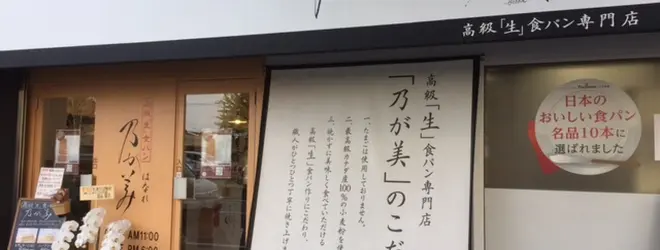 高級「生」食パン専門店
高級「生」食パン専門店
「乃が美」のこだ
一、たまごは使用しておりません。
二、最高級カナダ産100%の小麦粉を使
三、焼かずに美味しく食べていただける
高級「生」食パン作りにこだわり、
職人がひとつひとつ丁寧に焼き上げ
日本の
おいしい食パン
名品10本に
選ばれました
乃が美
はなれ
AM11:00